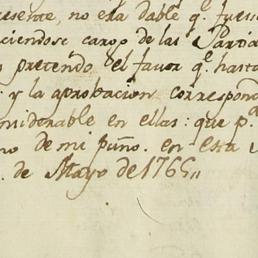 resente, no era dable q.e fuess
ciendose cargo de las Parti
s pretendo el favor q.e hasta
y la aprobacion correspond
onsiderable en ellas: que p.r
no de mi puño. en esta
de Mayo de 1765,,